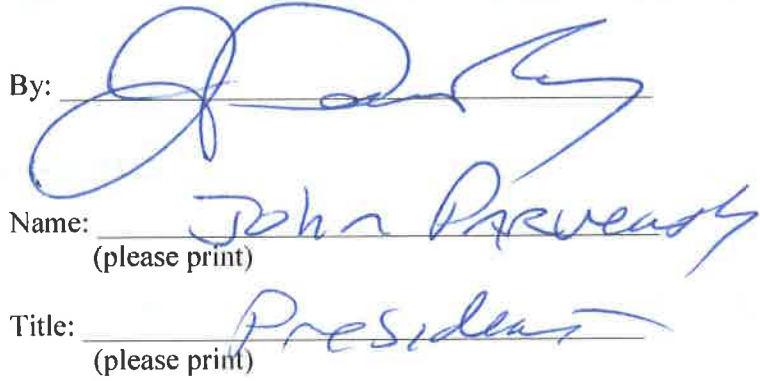 By:
Name: John Parvensky
(please print)
Title: President
(please print)